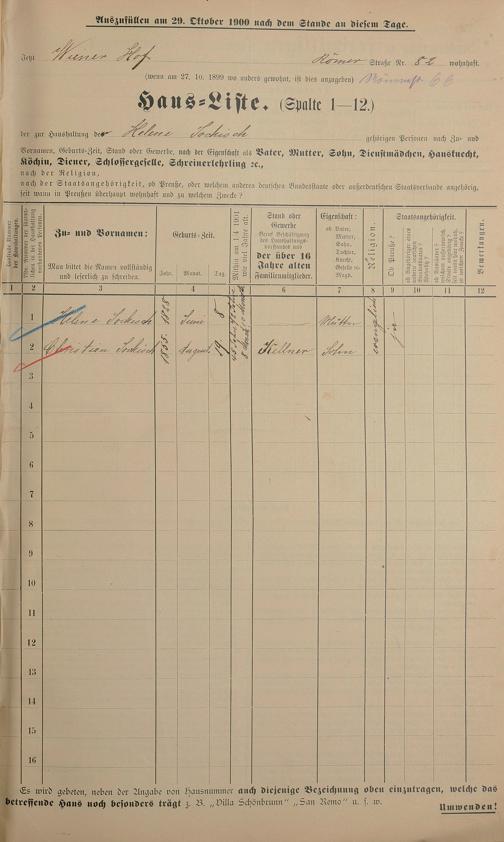 Auszufüllen am 29. Oktober 1900 nach dem Stande an diesem Tage.
Jetzt Wiener Hof Römer Straße Nr. 82 wohnhaft.
(wenn am 27. 10. 1899 wo anders gewohnt, ist dies anzugeben)
Haus=Liste. (Spalte 1—12.)
der zur Haushaltung der Helene gehörigen Personen nach Zu- und
Vornamen, Geburts-Zeit, Stand oder Gewerbe, nach der Eigenschaft als Vater, Mutter, Sohn, Dienstmädchen, Hausknecht,
Köchin, Diener, Schlossergeselle, Schreinerlehrling ꝛc.,
nach der Religion,
nach der Staatsangehörigkeit, ob Preuße, oder welchem anderen deutschen Bundesstaate oder außerdeutschen Staatsverbande angehörig,
seit wann in Preußen überhaupt wohnhaft und zu welchem Zwecke?
Zu- und Vornamen:
Man bittet die Namen vollständig
und leserlich zu schreiben.
Geburts-Zeit.
Jahr. Monat. Tag.
Mithin am 1. 4. 1901
wie viel Jahre alt.
Stand oder
Gewerbe
der über 16
Jahre alten
Familienmitglieder.
Eigenschaft:
ob Vater,
Mutter,
Sohn,
Tochter,
Knecht,
Geselle u.
Magd.
Religion.
Staatsangehörigkeit.
Ob Preuße?
Bemerkungen.
1 2 3 4 5 6 7 8 9 10 11 12
1 Helene Juni 8 Mutter ja
2 Christian August 19 Kellner Sohn
3
4
5
6
7
8
9
10
11
12
13
14
15
16
Es wird gebeten, neben der Angabe von Hausnummer auch diejenige Bezeichnung oben einzutragen, welche das
betreffende Haus noch besonders trägt z. B. „Villa Schönbrunn" „San Remo" u. s. w.
Umwenden!